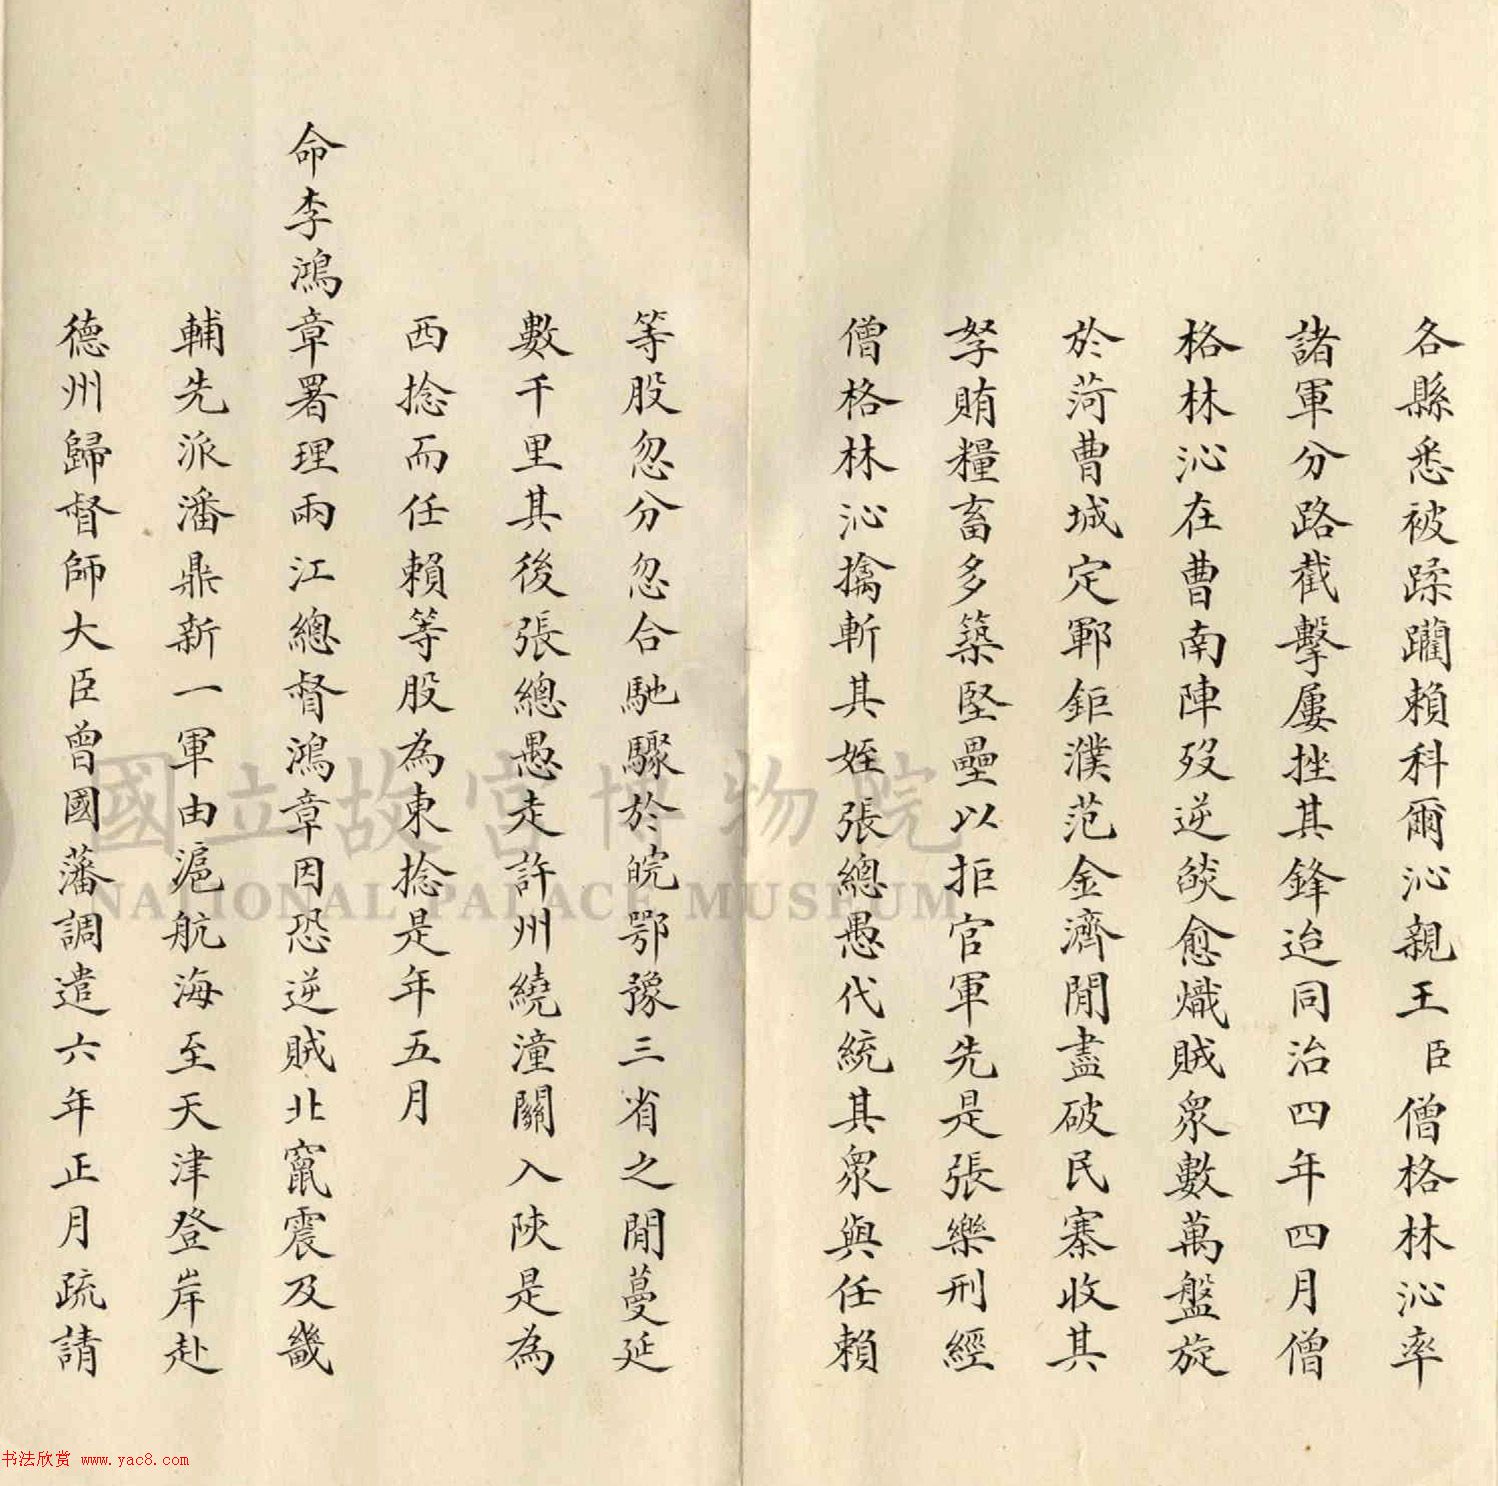 各縣悉被蹂躪賴科爾沁親王臣僧格林沁率
諸軍分路截擊屢挫其鋒迨同治四年四月僧
格林沁在曹南陣歿逆燄愈熾賊眾數萬盤旋
於菏曹城定鄆鉅濮范金濟閒盡破民寨收其
孥賄糧畜多築堅壘以拒官軍先是張樂刑經
僧格林沁擒斬其姪張總愚代統其眾與任賴
等股忽分忽合馳驟於皖鄂豫三省之閒蔓延
數千里其後張總愚走許州繞潼關入陝是為
西捻而任賴等股為東捻是年五月
命李鴻章署理兩江總督鴻章因恐逆賊北竄震及畿
輔先派潘鼎新一軍由滬航海至天津登岸赴
德州歸督師大臣曾國藩調遣六年正月疏請
國立故宮博物院
NATIONAL PALACE MUSEUM
书法欣赏 www.yac8.com